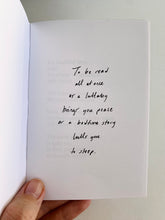 To be read
all at once
as a lullaby
brings you peace
or a bedtime story
lulls you
to sleep.